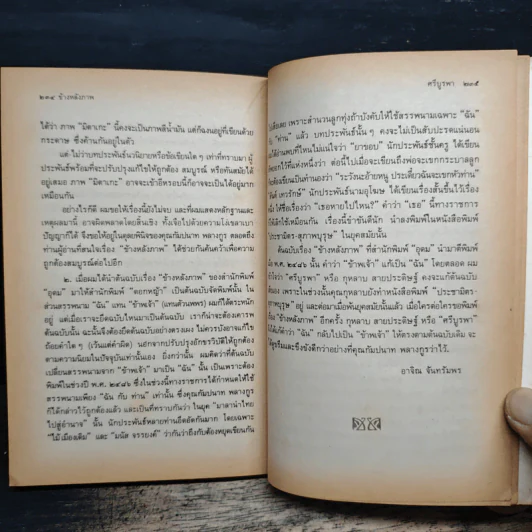 ๒๓๔ ข้างหลังภาพ
ได้ว่า ภาพ "มิตาเกะ" นี้คงจะเป็นภาพสีน้ำมัน แต่ก็งงอยู่ที่เขียนด้วย
กระดาษ ซึ่งด้านกันอยู่ในตัว
แต่ไม่ว่าบทประพันธ์นวนิยายหรือข้อเขียนใด ๆ เท่าที่ทราบมา ผู้
ประพันธ์พร้อมที่จะปรับปรุงแก้ไขให้ถูกต้อง สมบูรณ์ หรือทันสมัยได้
อยู่เสมอ ภาพ "มิตาเกะ" อาจจะเข้าอีหรอบนี้ก็อาจจะเป็นได้อยู่มาก
เหมือนกัน
อย่างไรก็ดี ผมขอให้เรื่องนี้ยังไม่จบ และที่ผมแสดงหลักฐานและ
เหตุผลมานี้ อาจผิดพลาดโดยสิ้นเชิง ทั้งเจือไปด้วยความโง่เขลาเบา
ปัญญาก็ได้ จึงขอให้อยู่ในดุลยพินิจของคุณกัมปนาท พลางกูร ตลอดถึง
ท่านผู้อ่านที่สนใจเรื่อง "ข้างหลังภาพ" ได้ช่วยกันค้นคว้าเพื่อความ
ถูกต้องสมบูรณ์ต่อไปอีก
๒. เมื่อผมได้นำต้นฉบับเรื่อง "ข้างหลังภาพ" ของสำนักพิมพ์
"อุดม" มาให้สำนักพิมพ์ "ดอกหญ้า" เป็นต้นฉบับจัดพิมพ์นั้น ใน
สรรพนาม "ฉัน" แทน "ข้าพเจ้า" (แทนตัวนพพร) ผมก็ได้ตระหนัก
อยู่ แต่เมื่อเราจะยึดต้นฉบับเดิมเป็นหลัก เราก็น่าจะต้องเคารพ
ต้นฉบับนั้น ฉะนั้นจึงต้องยึดต้นฉบับอย่างตรงเผง ไม่ควรบังอาจแก้ไข
ถ้อยคำใด ๆ (เว้นแต่คำผิด) นอกจากปรับปรุงอักขรวิธีให้ถูกต้อง
ตามความนิยมในปัจจุบันเท่านั้นเอง ยิ่งกว่านั้น ผมคิดว่าที่ต้นฉบับ
เปลี่ยนสรรพนามจาก "ข้าพเจ้า" มาเป็น "ฉัน" นั้น เป็นเพราะต้อง
พิมพ์ในช่วงปี พ.ศ. ๒๔๘๖ ซึ่งในช่วงนี้ทางราชการได้กำหนดให้ใช้
สรรพนามเพียง "ฉัน กับ ท่าน" เท่านั้น ซึ่งคุณกัมปนาท พลางกูร
ก็ได้กล่าวไว้ถูกต้องแล้ว และเป็นที่ทราบกันว่า ในยุค "มาลานำไทย
ไปสู่อำนาจ" นั้น นักประพันธ์หลายท่านอึดอัดกันมาก โดยเฉพาะ
"ไม้ เมืองเดิม" และ "มนัส จรรยงค์" ว่ากันว่าถึงกับต้องหยุดเขียนกัน
ศรีบูรพา ๒๓๕
ไปเลย เพราะสำนวนลูกทุ่งถ้าบังคับให้ใช้สรรพนามเฉพาะ "ฉัน"
"ท่าน" แล้ว บทประพันธ์นั้น ๆ คงจะไม่เป็นสับปะรดแน่นอน
ได้อ่านพบที่ไหนไม่แน่ใจว่า "ยาขอบ" นักประพันธ์ชั้นครู ได้เขียน
ไว้ที่แห่งหนึ่งว่า ต่อนี้ไปเมื่อจะเขียนถึงพ่อจะเขกกระบาลลูก
ต้องเขียนเป็นทำนองว่า "ระวังนะอ้ายหนู ประเดี๋ยวฉันจะเขกหัวท่าน"
เทวรักษ์" นักประพันธ์นามอุโฆษ ได้เขียนเรื่องสั้นขึ้นไว้เรื่อง
ให้ชื่อเรื่องว่า "เธอหายไปไหน?" คำว่า " เธอ " นี้ทางราชการ
ให้เลิกใช้เหมือนกัน เรื่องนี้ขำขันดีนัก นำลงพิมพ์ในหนังสือพิมพ์
ประชามิตร-สุภาพบุรุษ" ในยุคสมัยนั้น
ต้นฉบับเรื่อง "ข้างหลังภาพ" ที่สำนักพิมพ์ "อุดม" นำมาตีพิมพ์
พ.ศ. ๒๔๘๖ นั้น คำว่า "ข้าพเจ้า" แก้เป็น "ฉัน" โดยตลอด ผม
ว่า "ศรีบูรพา" หรือ กุหลาบ สายประดิษฐ์ คงจะแก้ต้นฉบับ
เพราะในช่วงนั้นกุหลาบยังทำหนังสือพิมพ์ "ประชามิตร-สุภาพ-
บุรุษ" อยู่ และต่อมาเมื่อพ้นยุคสมัยนั้นแล้ว เมื่อใครต่อใครขอพิมพ์
"ข้างหลังภาพ" อีกครั้ง กุหลาบ สายประดิษฐ์ หรือ "ศรีบูรพา"
ได้แก้คำว่า "ฉัน" กลับไปเป็น "ข้าพเจ้า" ให้ตรงตามต้นฉบับเดิม จะ
ได้ซึ้งดีกว่าอย่างที่คุณกัมปนาท พลางกูรว่าไว้.
อาจิณ จันทรัมพร